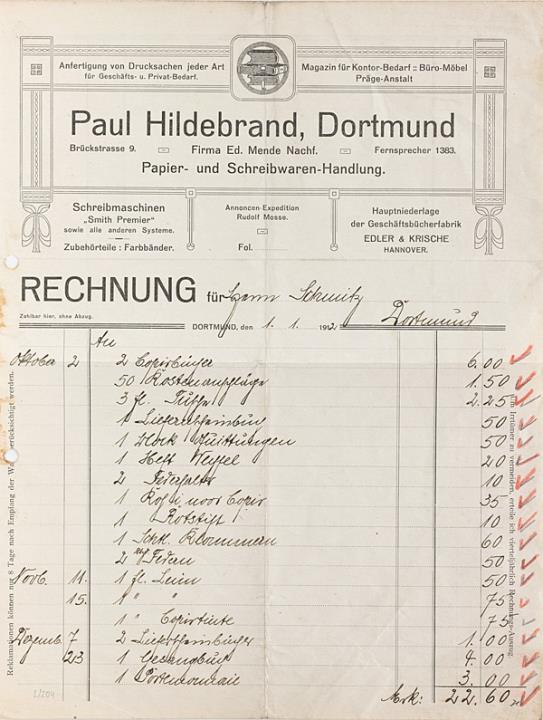 Anfertigung von Drucksachen jeder Art
für Geschäfts- u. Privat-Bedarf.
Magazin für Kontor-Bedarf :: Büro-Möbel
Präge-Anstalt
Paul Hildebrand, Dortmund
Brückstrasse 9. Firma Ed. Mende Nachf. Fernsprecher 1383.
Papier- und Schreibwaren-Handlung.
Schreibmaschinen
„Smith Premier“
sowie alle anderen Systeme.
Zubehörteile : Farbbänder.
Annoncen-Expedition
Rudolf Mosse.
Fol.
Hauptniederlage
der Geschäftsbücherfabrik
EDLER & KRISCHE
HANNOVER.
RECHNUNG für Herrn Schmitz
Zahlbar hier, ohne Abzug.
DORTMUND, den 1. 1. 1912. Dortmund
An
Oktober 2 2 Copirbücher 6.00
50 Kostenanschläge 1.50
3 fl. Tusche 2.25
1 50
1 Block Quittungen 50
1 Heft Wechsel 20
2 Federhalter 10
1 Copir 35
1 Rotstift 10
1 Scht. Klammern 60
2 Federn 50
Novb. 11. 1 fl. Leim 50
15. 1 " " 75
1 " Copirtinte 75
Dezemb. 7 2 1.00
23 1 Gesangbuch 4.00
1 Portemonnaie 3.00
Mrk: 22.60
Reklamationen können nur 8 Tage nach Empfang der Ware berücksichtigt werden.
Um Irrtümer zu vermeiden, erteile ich vierteljährlich Rechnungs-Auszug.